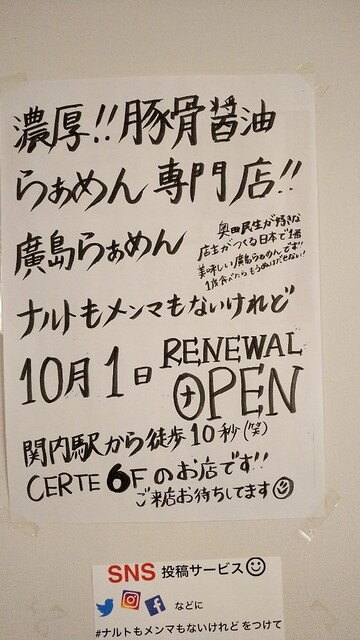 濃厚!!豚骨醤油
らぁめん専門店!!
廣島らぁめん
奥田民生が好きな
店主がつくる日本で1番
美味しい廣島らぁめんです!!
1度食べたらもうぬけだせない!
ナルトもメンマもないけれど
10月1日 RENEWAL
OPEN
関内駅から徒歩10秒(笑)
CERTE 6Fのお店です!!
ご来店お待ちしてます☺
SNS 投稿サービス☺
などに
#ナルトもメンマもないけれど をつけて